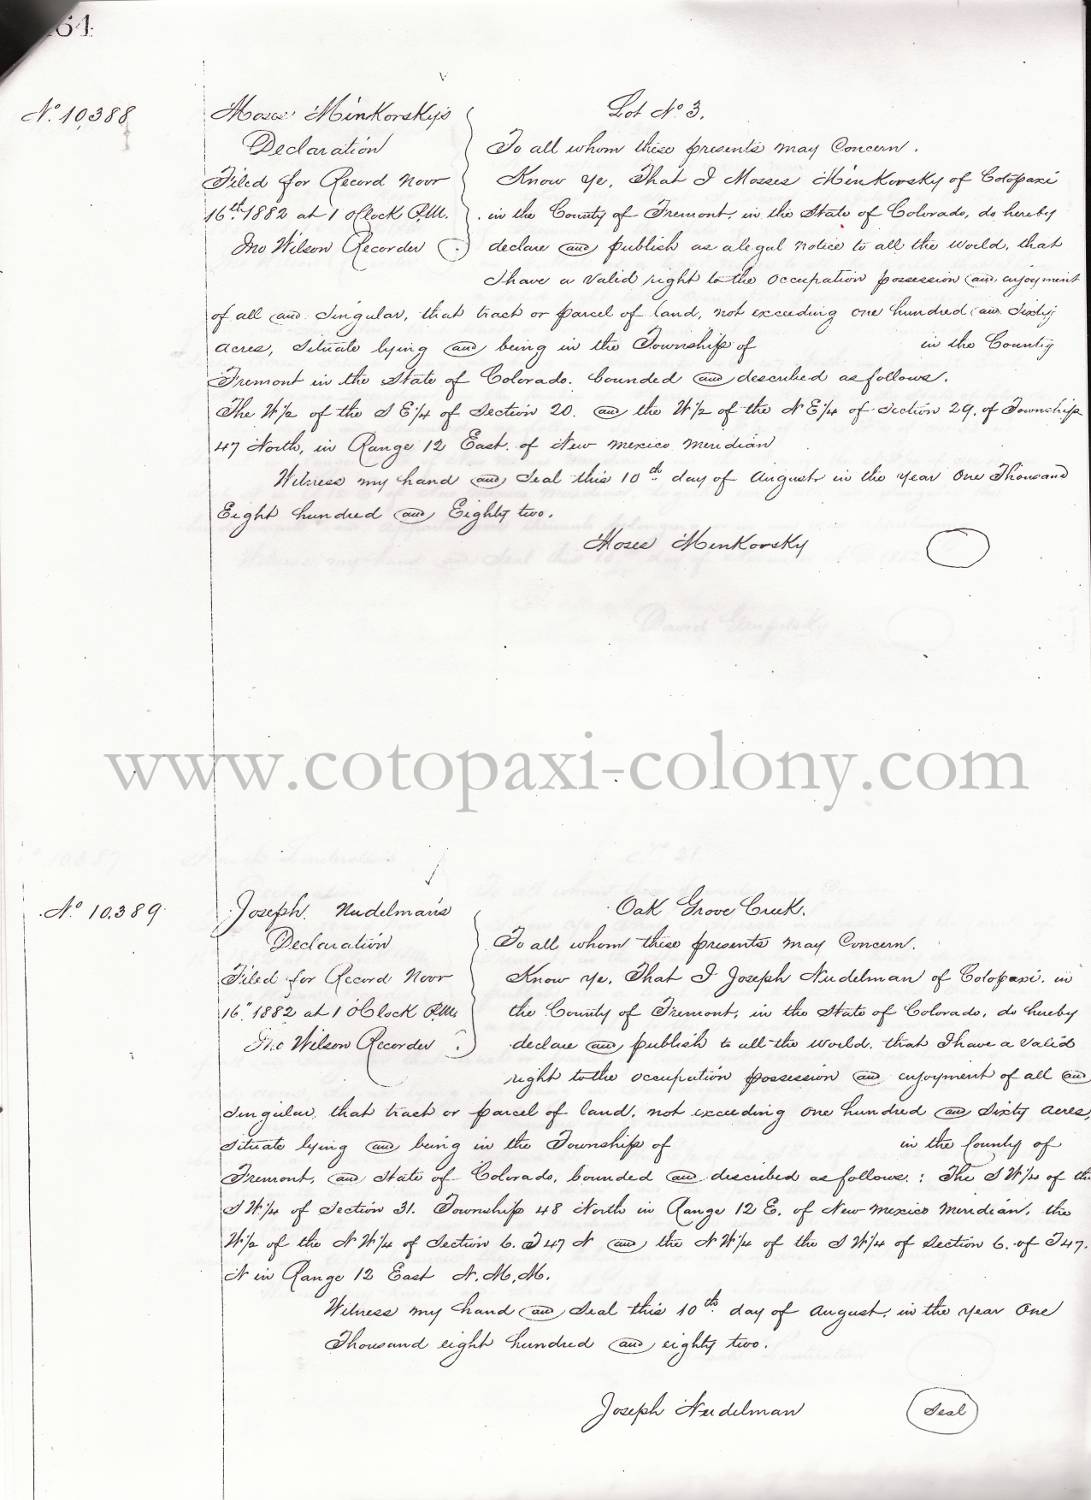 164
No 10,388
Moses Minkorsky's
Declaration
Filed for Record Novr
16th 1882 at 1 oClock P.M.
Jno Wilson Recorder
Lot No 3.
To all whom these presents may Concern.
Know Ye, That I Mosses Minkorsky of Cotopaxi
in the County of Fremont, in the State of Colorado, do hereby
declare and publish as a legal notice to all the world, that
I have a valid right to the occupation possession and enjoyment
of all and singular, that tract or parcel of land, not exceeding one hundred and sixty
acres, situate lying and being in the Township of in the County
Fremont in the State of Colorado. bounded and described as follows.
The W 1/2 of the S E 1/4 of Section 20. and the W 1/2 of the N E 1/4 of Section 29. of Township
47 North, in Range 12 East. of New Mexico Meridian
Witness my hand and Seal this 10th day of August in the year One Thousand
Eight hundred and Eighty two.
Moses Minkorsky
www.cotopaxi-colony.com
No 10.389
Joseph Nudelman's
Declaration
Filed for Record Novr
16" 1882 at 1 oClock P.M.
Jno Wilson Recorder
Oak Grove Creek.
To all whom these presents may Concern.
Know Ye, That I Joseph Nudelman of Cotopaxi. in
the County of Fremont, in the State of Colorado, do hereby
declare and publish to all the world, that I have a valid
right to the occupation possession and enjoyment of all and
singular, that tract or parcel of land, not exceeding one hundred and sixty acres,
situate lying and being in the Township of in the County of
Fremont, and State of Colorado, bounded and described as follows: The S W 1/4 of the
S W 1/4 of Section 31. Township 48 North in Range 12 E. of New Mexico Meridian, the
W 1/2 of the N W 1/4 of Section 6. T 47 N and the N W 1/4 of the S W 1/4 of Section 6. of T 47.
N in Range 12 East N.M.M.
Witness my hand and Seal this 10th day of August, in the year One
Thousand eight hundred and eighty two.
Joseph Nudelman
Seal